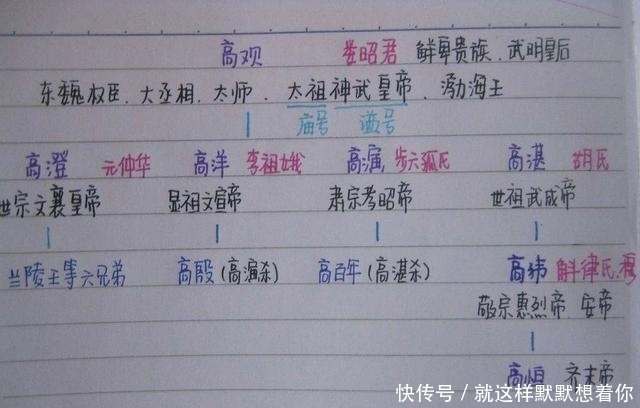 高观 娄昭君 鲜卑贵族、武明皇后
东魏权臣、大丞相、太师、太祖神武皇帝、渤海王
庙号 谥号
高澄 元仲华 高洋 李祖娥 高演 步六孤氏 高湛 胡氏
世宗文襄皇帝 显祖文宣帝 肃宗孝昭帝 世祖武成帝
兰陵王等六兄弟 高殷(高演杀) 高百年(高湛杀) 高纬 斛律氏、穆
敬宗惠烈帝、安帝
高恒 齐末帝
快传号/就这样默默想着你